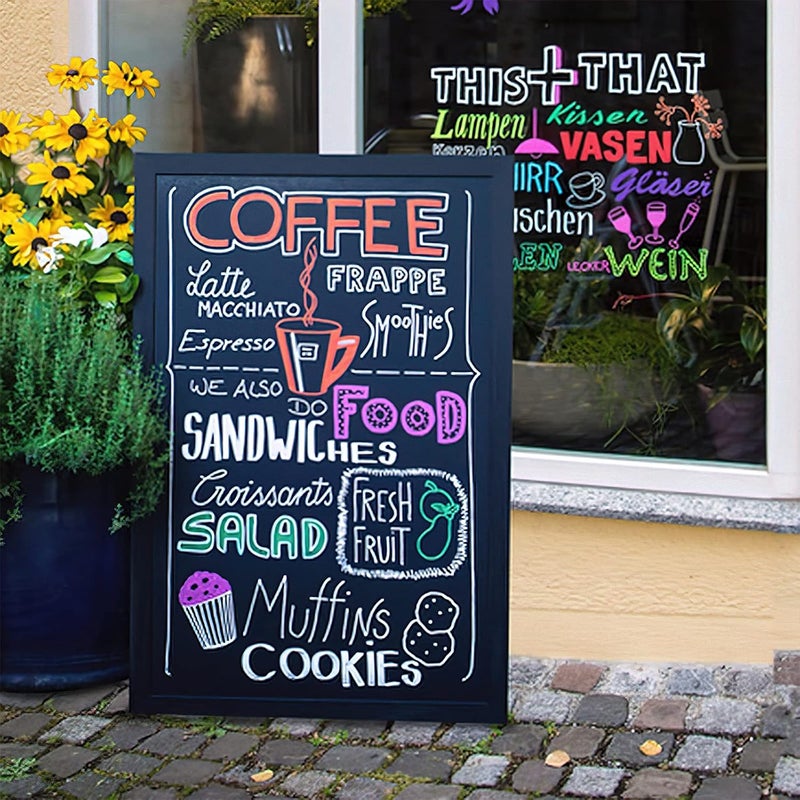 COFFEE
Latte MACCHIATO
FRAPPE
Espresso
SMOOTHIES
WE ALSO DO FOOD
SANDWICHES
Croissants
SALAD
FRESH FRUIT
Muffins
COOKIES
THIS + THAT
Lampen Kissen
Kerzen VASEN
Gläser
LECKER WEIN